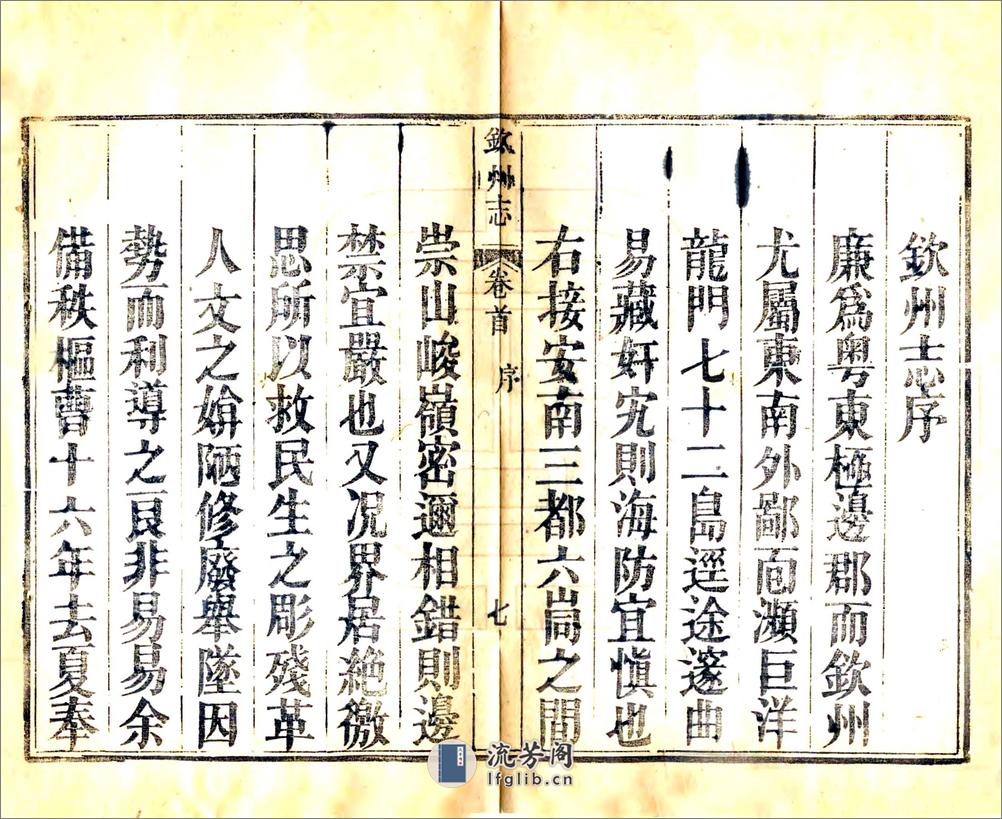 欽州志序
廉爲粤東極邊郡而欽州
尤屬東南外鄙面瀕巨洋
龍門七十二島逕途邃曲
易藏奸宄則海防宜愼也
右接安南三都六峝之間
欽州志
卷首
序
七
崇山峻嶺密邇相錯則邊
禁宜嚴也又况界居絶徼
思所以救民生之彫殘革
人文之媕陋修廢舉墜因
勢而利導之艮非易易余
備秩樞曹十六年去夏奉
流芳阁
lfglib.cn